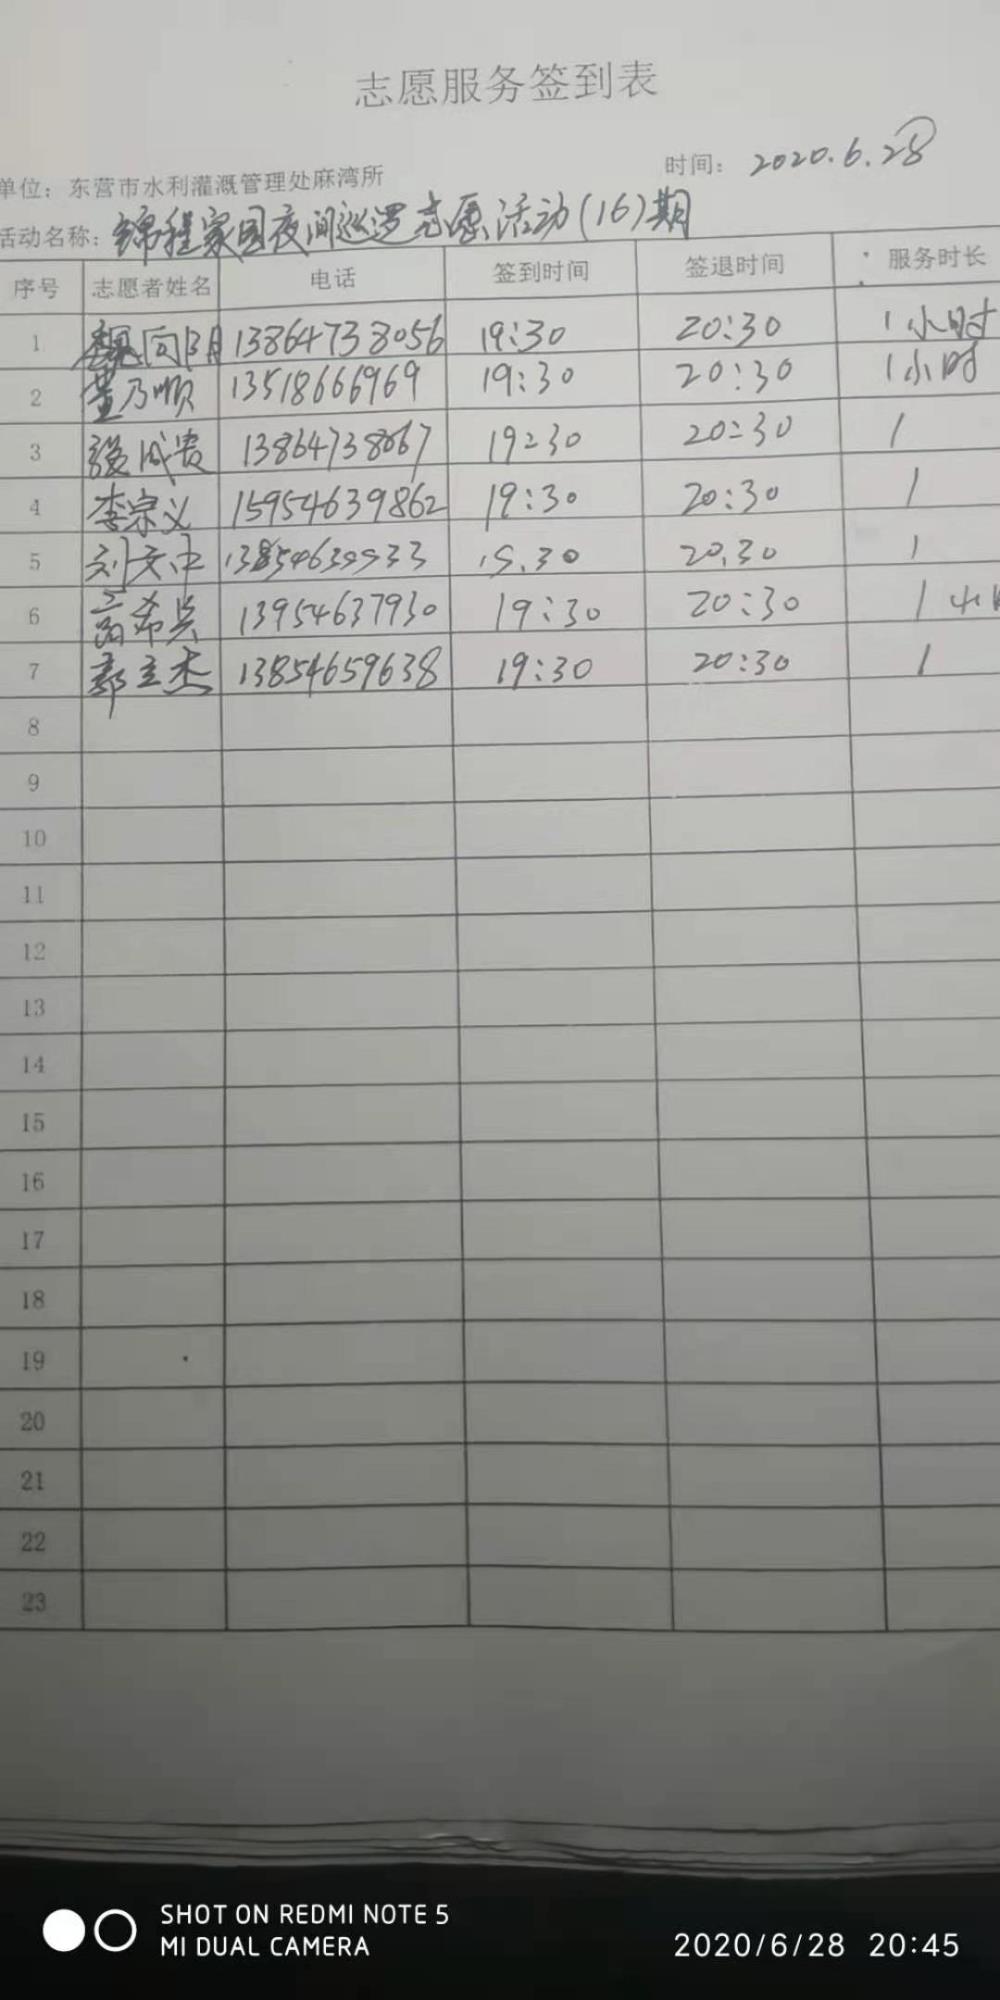 志愿服务签到表
单位：东营市水利灌溉管理处麻湾所 时间：2020.6.28
活动名称：锦程家园夜间巡逻志愿活动(16)期
序号 志愿者姓名 电话 签到时间 签退时间 服务时长
1 魏向阳 13864738056 19:30 20:30 1小时
2 董乃顺 13518666969 19:30 20:30 1小时
3 张成贵 13864738067 19:30 20:30 1
4 李宗义 15954639862 19:30 20:30 1
5 刘文中 20.30 1
6 高希兵 13954637930 19:30 20:30 1小时
7 郭立杰 13854659638 19:30 20:30 1
8
9
10
11
12
13
14
15
16
17
18
19
20
21
22
23
SHOT ON REDMI NOTE 5
MI DUAL CAMERA
2020/6/28 20:45